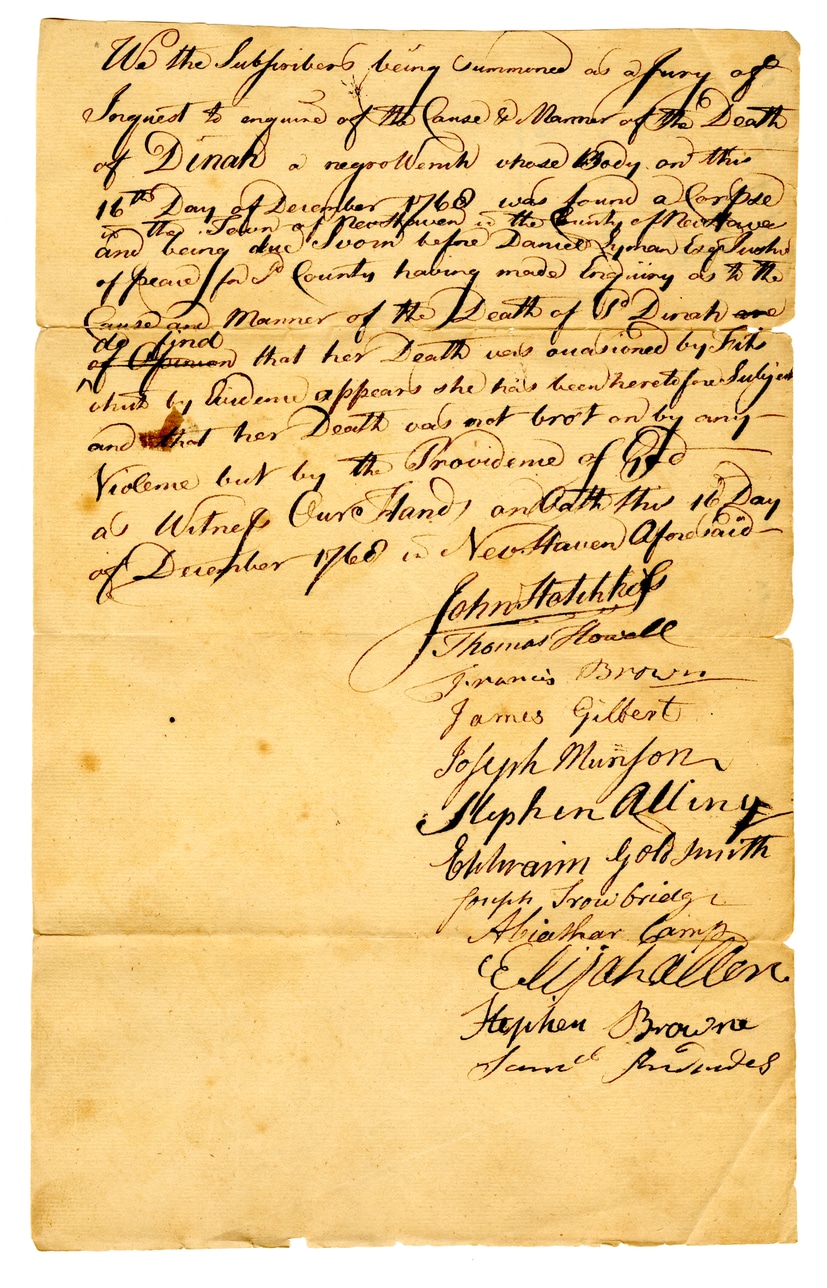 We the Subscribers being Summoned as a Jury of
Inquest to enquire of the Cause & Manner of the Death
of Dinah a negro Wench whose Body on this
16th Day of December 1768 was found a Corpse
in the Town of New Haven in the County of New Haven
and being due Sworn before Daniel Lyman Esqr Justice
of peace for Sd County having made Enquiry as to the
Cause and Manner of the Death of Sd Dinah are
do find
of Opinion that her Death was ocasioned by Fits
which by Evidence appears she has been heretofore Subject
and that her Death was not brot on by any
Violence but by the Providence of God
as Witness Our Hands on Oath this 16 Day
of December 1768 in New Haven Aforesaid
John Hotchkiss
Thomas Howell
Francis Brown
James Gilbert
Joseph Munson
Stephen Alling
Ephraim Goldsmith
Joseph Trowbridge
Abiathar Camp
Elijah Allen
Stephen Browne
Samll